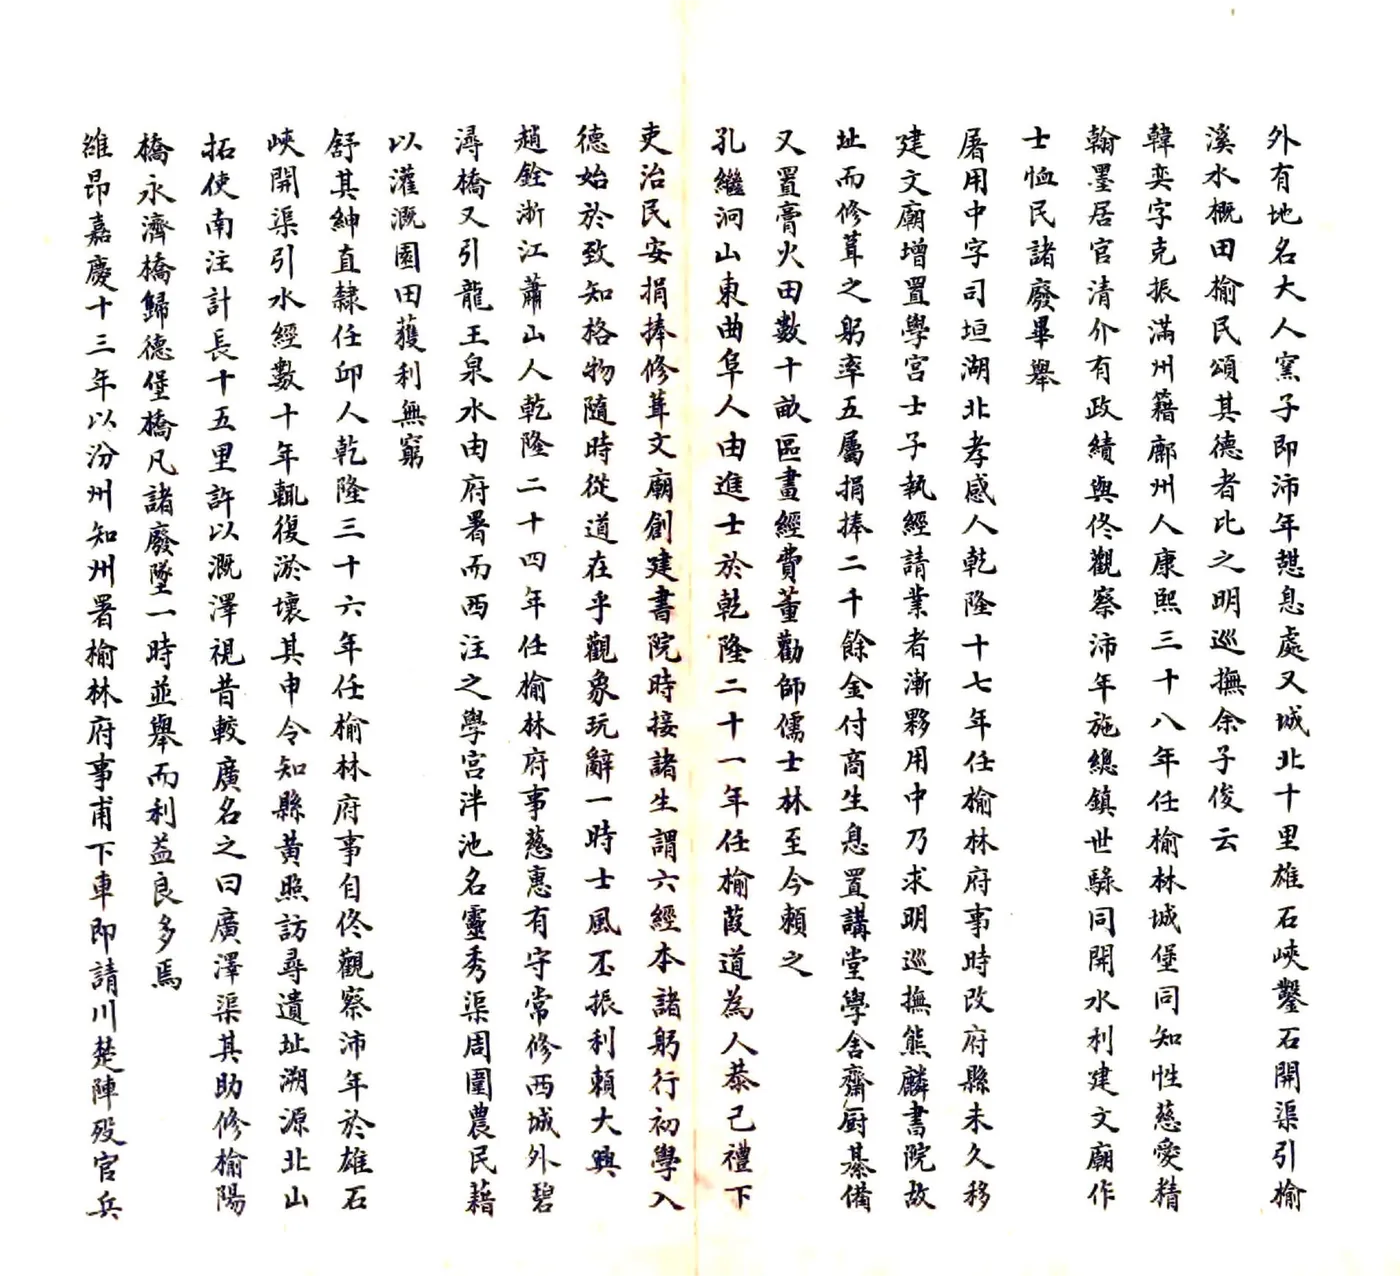 外有地名大人窯子即沛年憇息處又城北十里雄石峽鑿石開渠引榆
溪水概田榆民頌其德者比之明巡撫余子俊云
韓奕字克振滿州籍鄜州人康熙三十八年任榆林城堡同知性慈愛精
翰墨居官清介有政績與佟觀察沛年施總鎮世驃同開水利建文廟作
士恤民諸廢畢舉
屠用中字司垣湖北孝感人乾隆十七年任榆林府事時改府縣未久移
建文廟增置學宮士子執經請業者漸夥用中乃求明巡撫熊麟書院故
址而修葺之躬率五屬捐捧二千餘金付商生息置講堂學舍齋厨綦備
又置膏火田數十畝區畫經費董勸師儒士林至今賴之
孔繼泂山東曲阜人由進士於乾隆二十一年任榆葭道為人恭己禮下
吏治民安捐捧修葺文廟創建書院時接諸生謂六經本諸躬行初學入
德始於致知格物隨時從道在乎觀象玩辭一時士風丕振利賴大興
趙銓浙江蕭山人乾隆二十四年任榆林府事慈惠有守常修西城外碧
潯橋又引龍王泉水由府署而西注之學宮泮池名靈秀渠周圍農民藉
以灌溉園田獲利無窮
舒其紳直隸任邱人乾隆三十六年任榆林府事自佟觀察沛年於雄石
峽開渠引水經數十年輒復淤壞其申令知縣黃照訪尋遺址溯源北山
拓使南注計長十五里許以溉澤視昔較廣名之曰廣澤渠其助修榆陽
橋永濟橋歸德堡橋凡諸廢墜一時並舉而利益良多焉
維昂嘉慶十三年以汾州知州署榆林府事甫下車即請川楚陣歿官兵